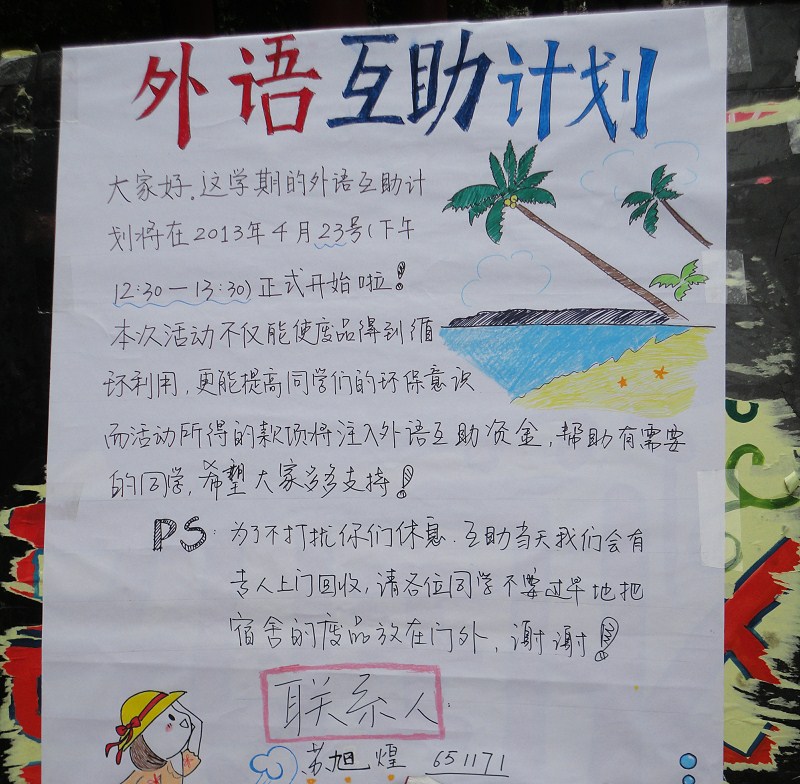 外语互助计划
大家好。这学期的外语互助计
划将在2013年4月23号(下午
12:30—13:30)正式开始啦!
本次活动不仅能使废品得到循
环利用,更能提高同学们的环保意识
而活动所得的款项将注入外语互助资金,帮助有需要
的同学,希望大家多多支持!
PS:为了不打扰你们休息.互助当天我们会有
专人上门回收,请各位同学不要过早地把
宿舍的废品放在门外,谢谢!
联系人:
苏旭煌 651171